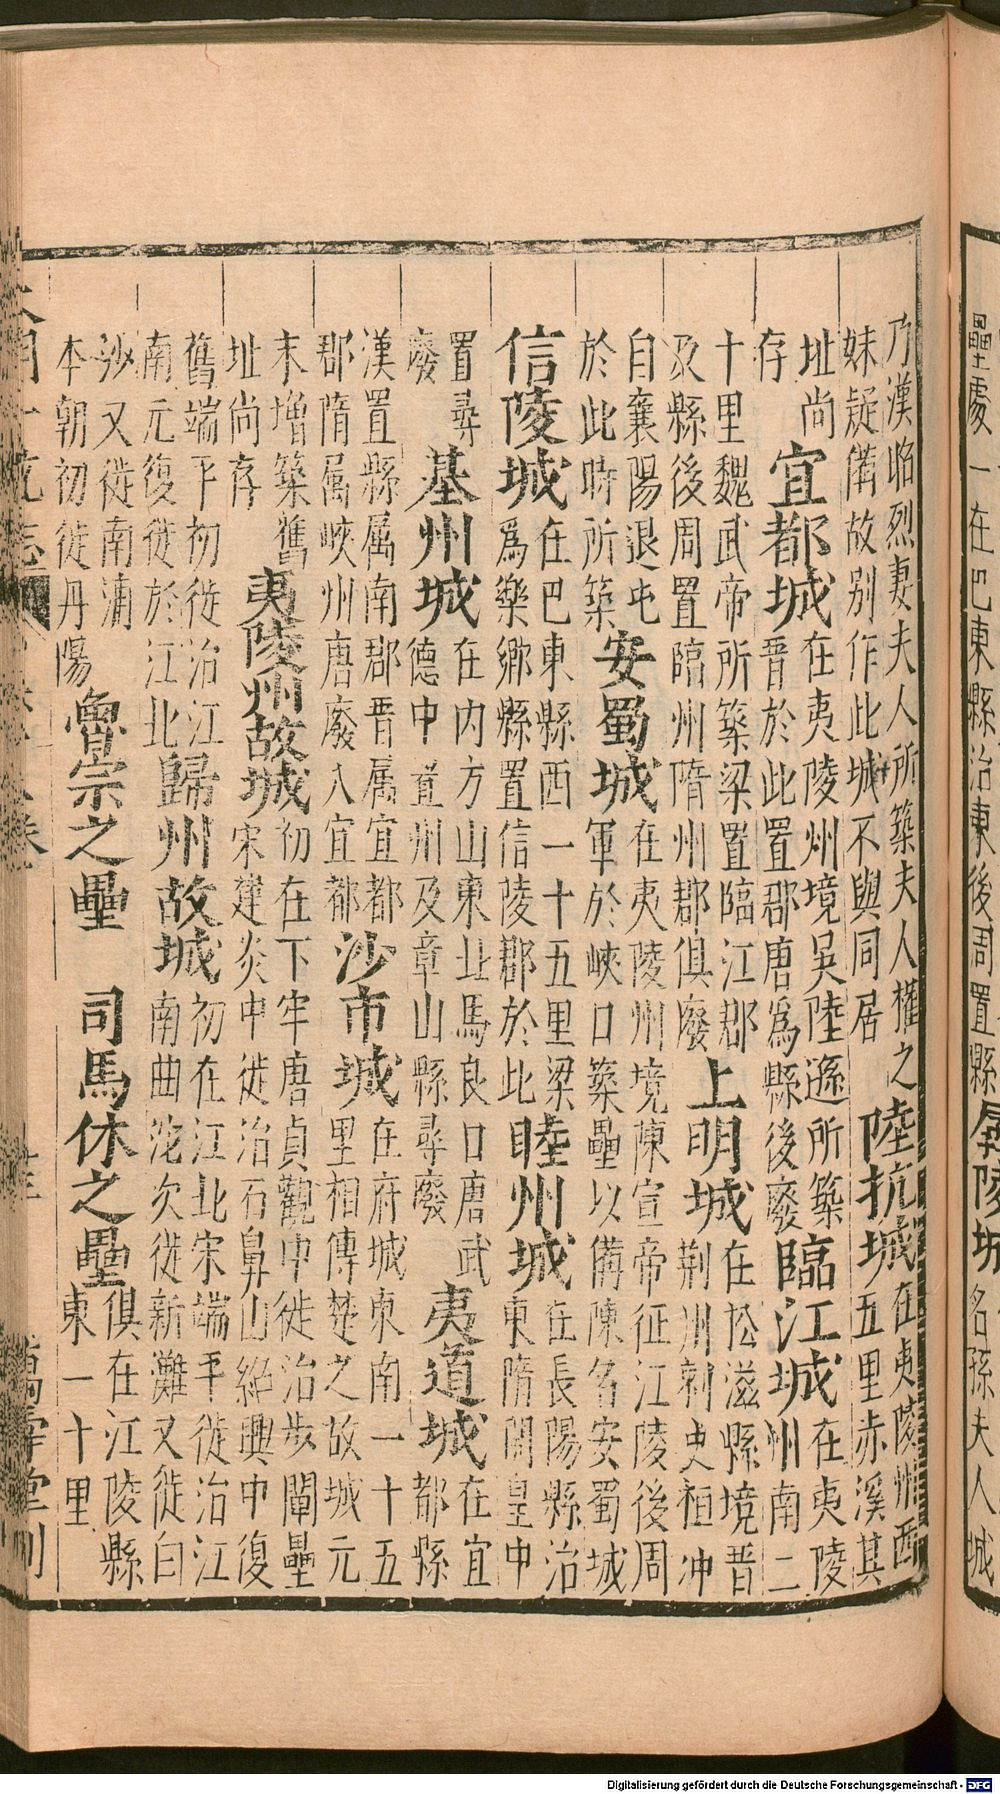 壘處一在巴東縣治東後周置縣孱陵城名孫夫人城
乃漢昭烈妻夫人所築夫人權之
妹疑備故别作此城不與同居
陸抗城
在夷陵州西
五里赤溪其
址尚
存
宜都城
在夷陵州境吳陸遜所築
晉於此置郡唐爲縣後廢
臨江城
在夷陵
州南二
十里魏武帝所築梁置臨江郡
及縣後周置臨州隋州郡俱廢
上明城
在松滋縣境晉
荆州刺史桓冲
自襄陽退屯
於此時所築
安蜀城
在夷陵州境陳宣帝征江陵後周
軍於峽口築壘以備陳名安蜀城
信陵城
在巴東縣西一十五里梁
爲樂鄉縣置信陵郡於此
睦州城
在長陽縣治
東隋開皇中
置尋
廢
基州城
在内方山東北馬良口唐武
德中置州及章山縣尋廢
夷道城
在宜
都縣
漢置縣屬南郡晉屬宜都
郡隋屬峽州唐廢入宜都
沙市城
在府城東南一十五
里相傳楚之故城元
末增築舊
址尚存
夷陵州故城
初在下牢唐貞觀中徙治步闡壘
宋建炎中徙治石鼻山紹興中復
舊端平初徙治江
南元復徙於江北
歸州故城
初在江北宋端平徙治江
南曲沱次徙新灘又徙白
沙又徙南浦
本朝初徙丹陽
魯宗之壘
司馬休之壘
俱在江陵縣
東一十里
大明一統志
廿三
萬壽堂刊
Digitalisierung gefördert durch die Deutsche Forschungsgemeinschaft - DFG